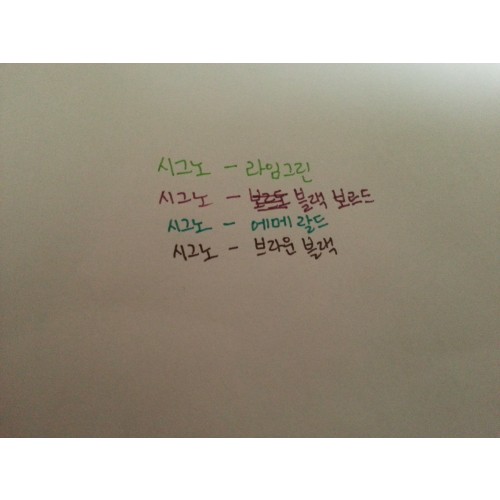 시그노 - 라임그린
시그노 - 블랙 보르드
시그노 - 에메랄드
시그노 - 브라운 블랙